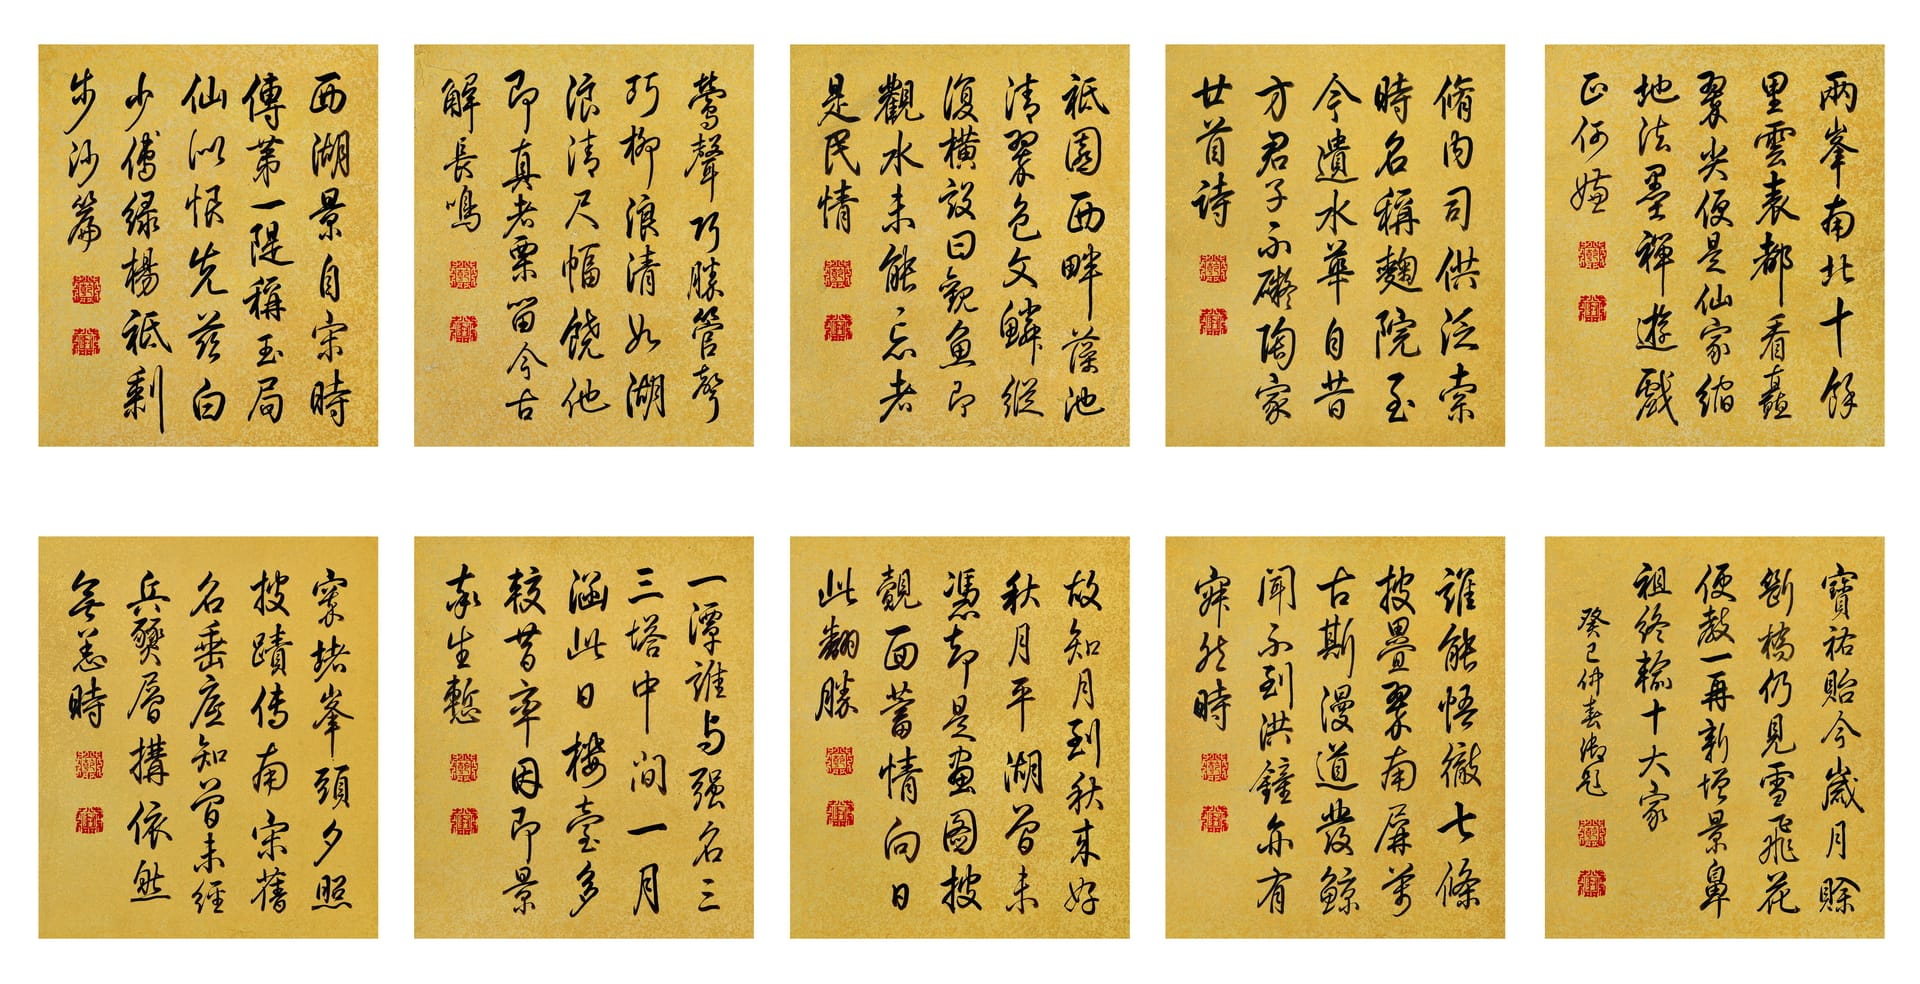 西湖景自宋時
傳第一隄稱玉局
仙似恨先茲白
少傅綠楊祗剩
步沙篇
鶯聲巧勝管聲
巧柳浪清如湖
浪清尺幅饒他
即真者栗留今古
解長鳴
祗園西畔藻池
清翠色文鱗縱
復橫設曰觀魚即
觀水未能忘者
是民情
脩內司供泛索
時名稱麴院至
今遺水華自昔
方君子不礙陶家
廿首詩
兩峯南北十餘
里雲表都看矗
翠尖便是仙家縮
地法墨禪遊戲
正何嫌
窣堵峯頭夕照
披蹟傳南宋舊
名垂應知曾未經
兵燹層搆依然
無恙時
一潭誰与强名三
三塔中間一月
涵此日樓臺多
較昔率因即景
奉生慙
故知月到秋來好
秋月平湖曾未
憑却是畫圖披
覿面蓄情向日
此翻勝
誰能悟徹七條
披疊翠南屏萬
古斯漫道發鯨
聞不到洪鐘亦有
寂然時
寶祐貽今歲月賒
斷橋仍見雪飛花
便教一再新增景鼻
祖終輸十大家
癸巳仲春御題